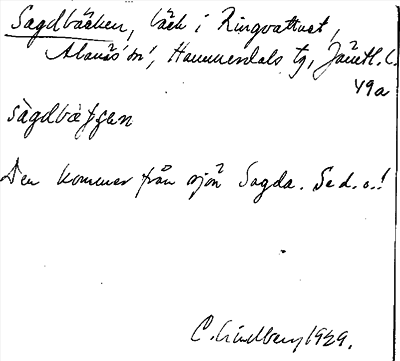 Sagdbäcken, bäck i Ringvattnet,
Alanäs sn, Hammerdals tg, Jämtl. l.
49a
sàgdbæ̀ƥƥen
Den kommer från sjön Sagda. Se d. o.!
C. Lindberg 1929.